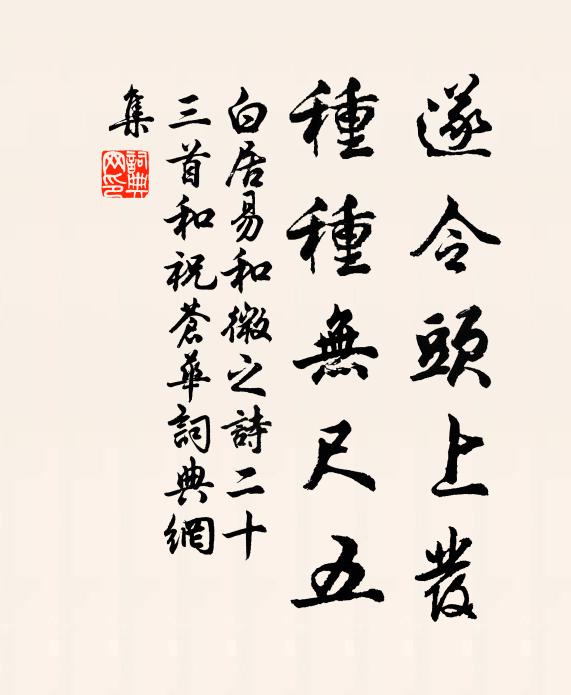 遂令頭上發
種種無尺五
白居易和微之詩二十
三首和祝蒼華詞典網
集
詞典網印